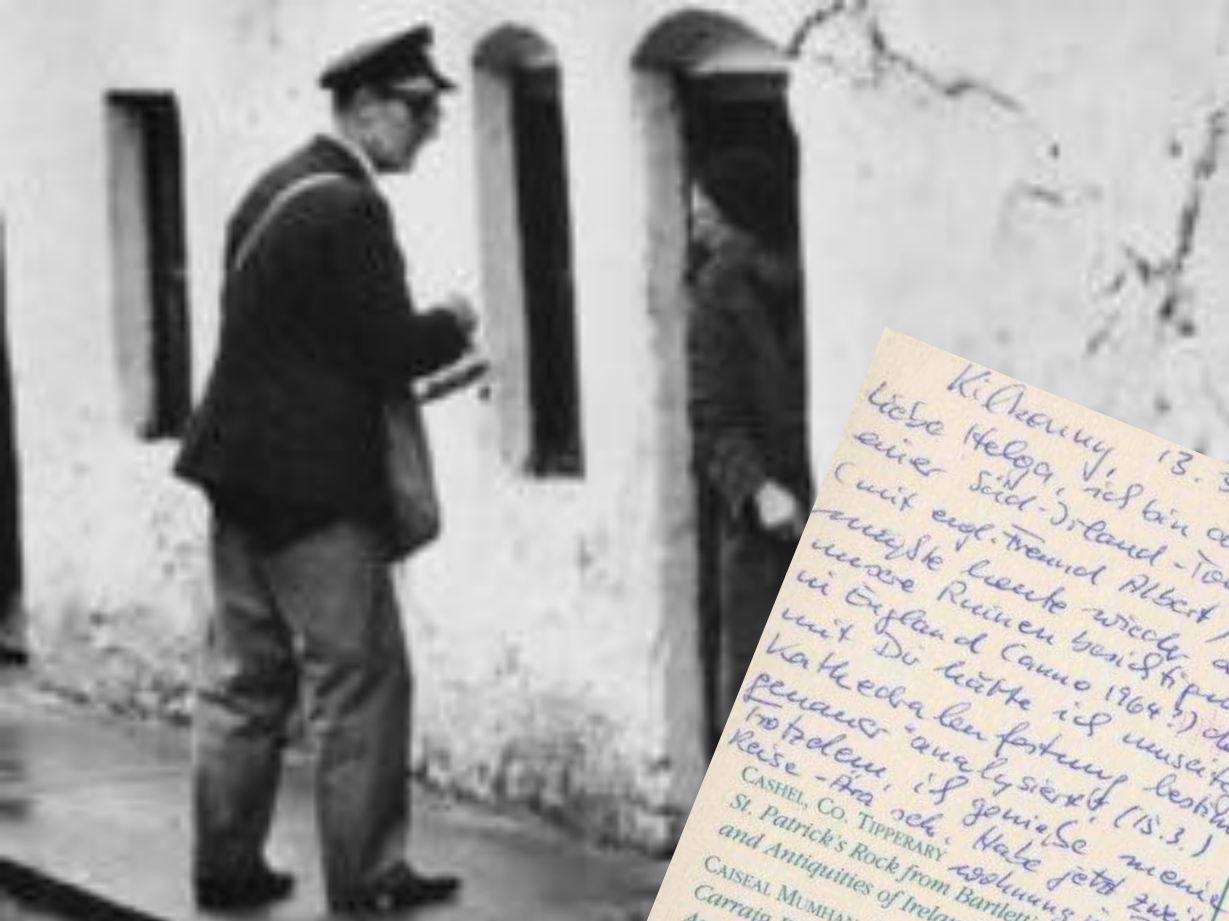 Kilkenny, 13. 3
Liebe Helga, ich bin a
einer Süd-Irland-To
(mit engl. Freund Albert)
mußte heute wieder a
unsere Ruinen besichtigu
in England (anno 1964?)
mit Dir hätte ich
Kathedralenfestung bestim
genauer "analysiert" (15.3.)
Trotzdem, ich genieße meine
Reise-Ära sehr. Habe jetzt zwei
wohnung
CASHEL, CO. TIPPERARY
St. Patrick's Rock from Bartle
and Antiquities of Irela
CAISEAL MUMHAN
Carraig